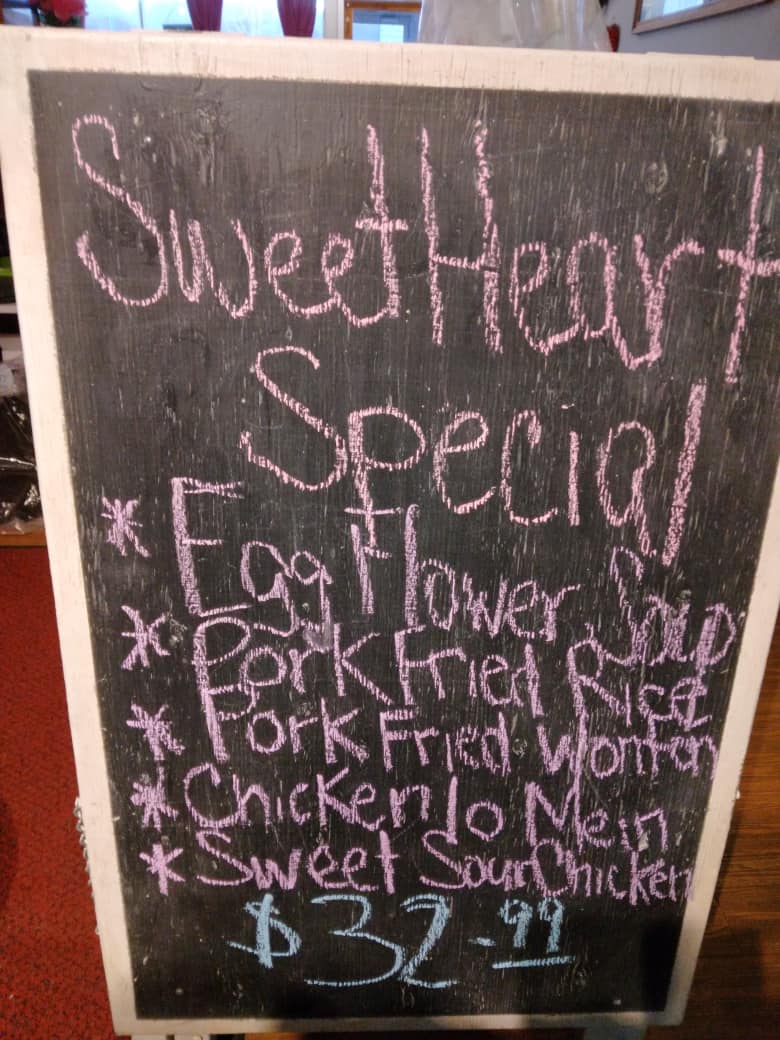 SweetHeart
Special
* Egg Flower Soup
* Pork Fried Rice
* Pork Fried Wonton
* Chicken lo Mein
* Sweet Sour Chicken
$32.99